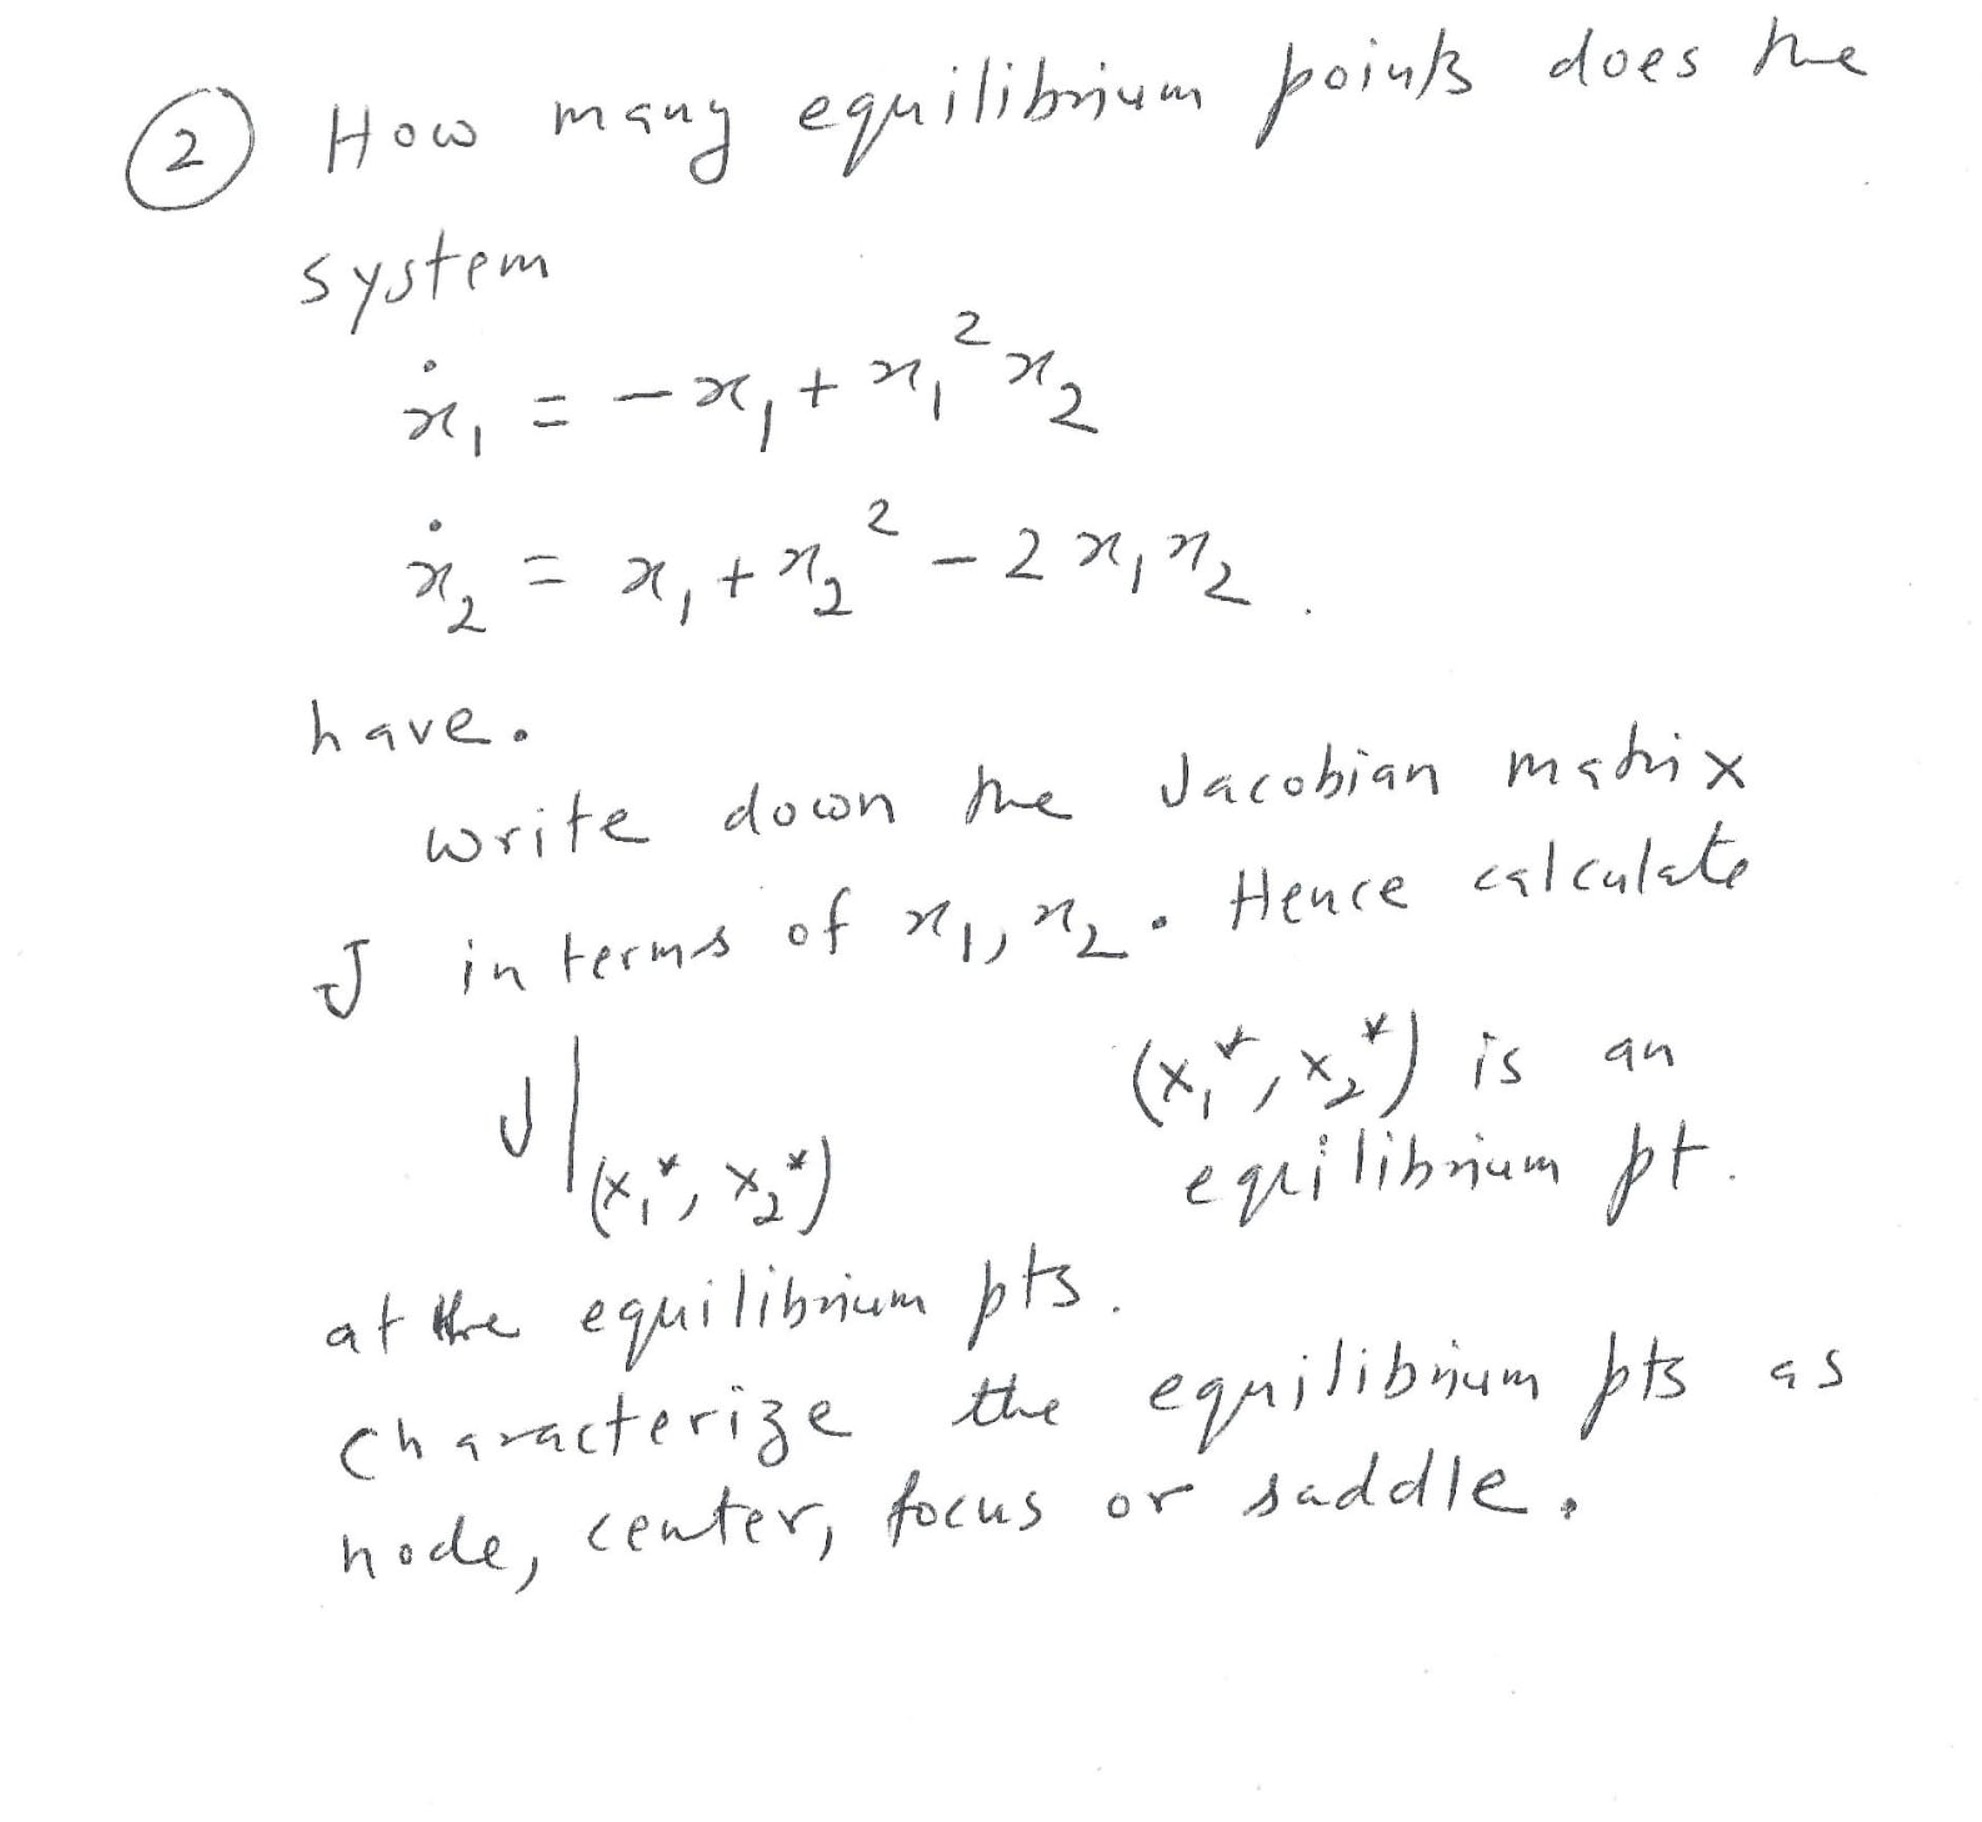 ② How many equilibrium points does the
system
ẋ₁ = -x₁ + x₁²x₂
ẋ₂ = x₁ + x₂² - 2x₁x₂.
have.
write down the Jacobian matrix
J in terms of x₁, x₂. Hence calculate
J|(x₁*, x₂*) (x₁*, x₂*) is an
equilibrium pt.
at the equilibrium pts.
Characterize the equilibrium pts as
node, center, focus or saddle.